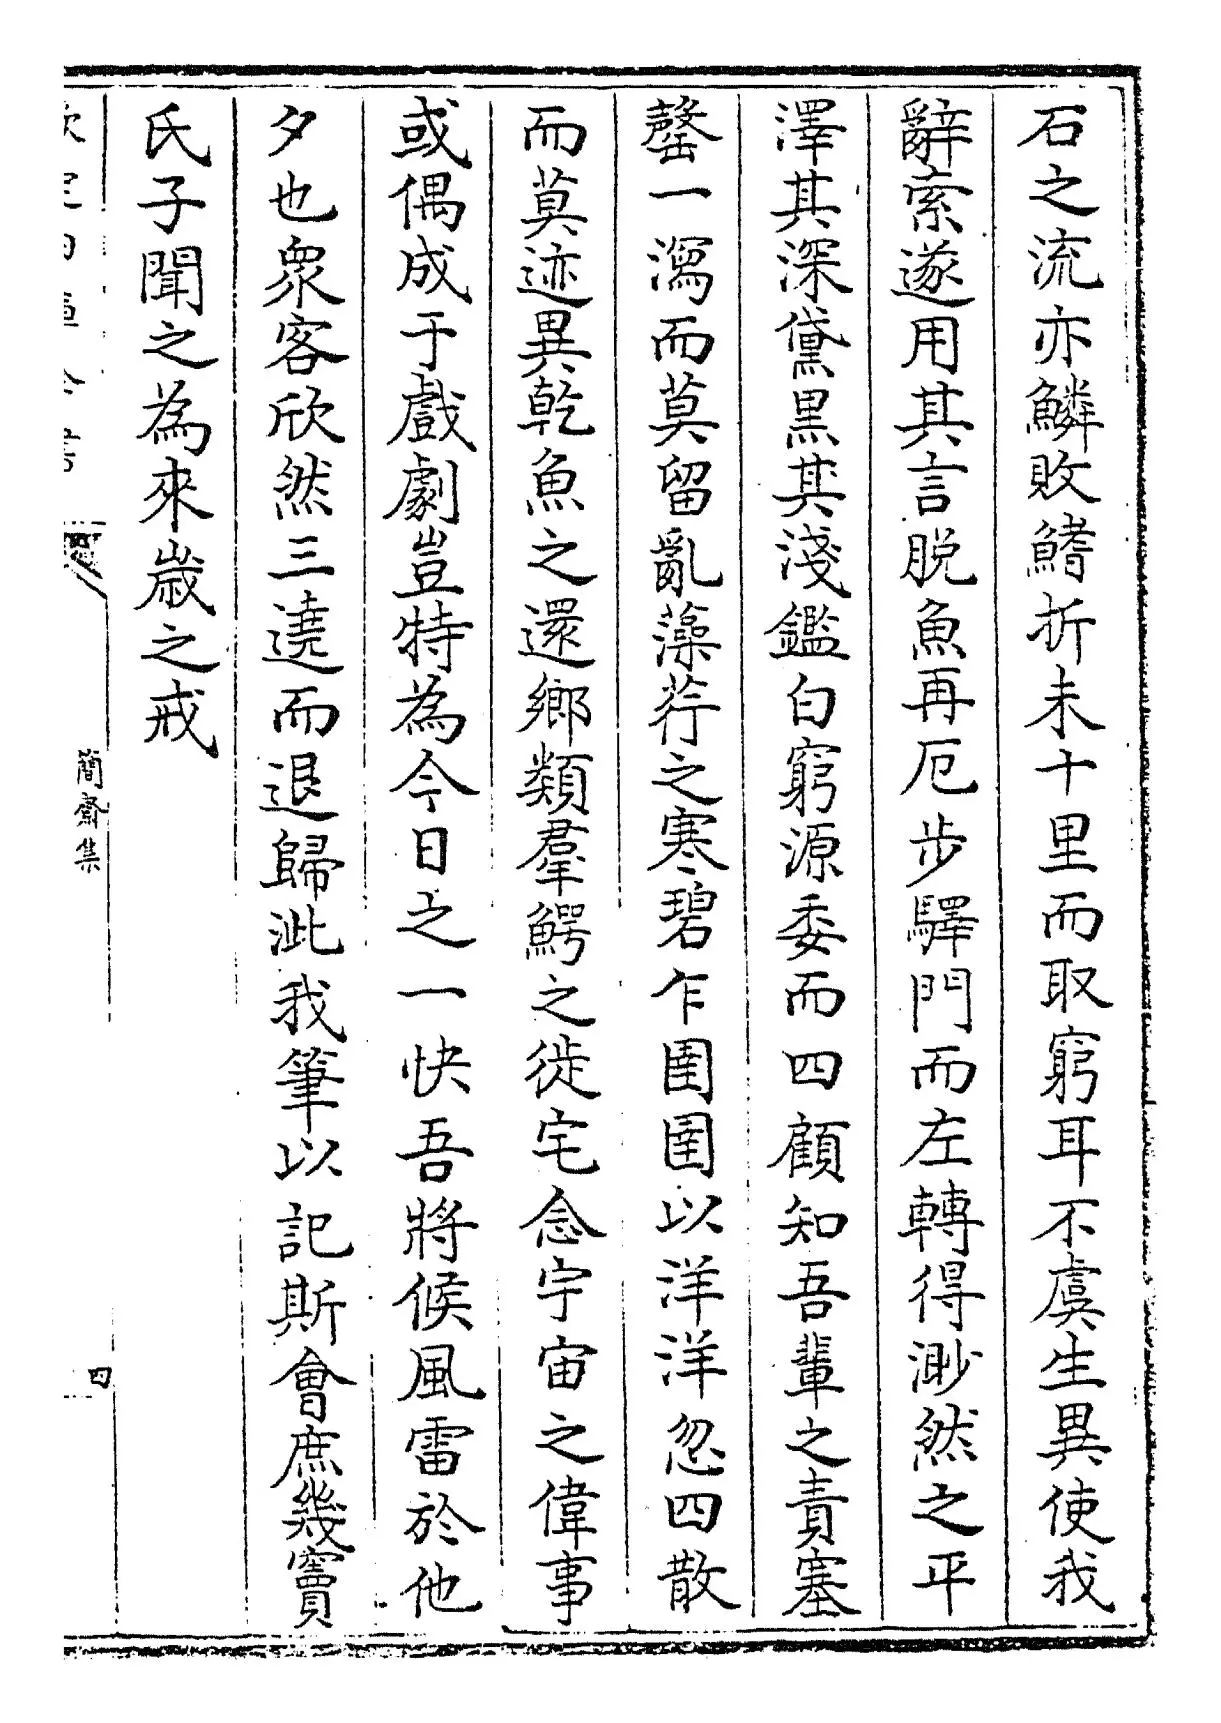 石之流亦鱗敗鰭折未十里而取窮耳不虞生異使我
辭索遂用其言脫魚再厄步驛門而左轉得渺然之平
澤其深黛黑其淺鑑白窮源委而四顧知吾輩之責塞
罄一瀉而莫留亂藻荇之寒碧乍圉圉以洋洋忽四散
而莫迹異乾魚之還鄉類羣鰐之徙宅念宇宙之偉事
或偶成于戲劇豈特為今日之一快吾將候風雷於他
夕也衆客欣然三遶而退歸泚我筆以記斯會庶幾竇
氏子聞之為來歲之戒
欽定四庫全書
簡齋集
四